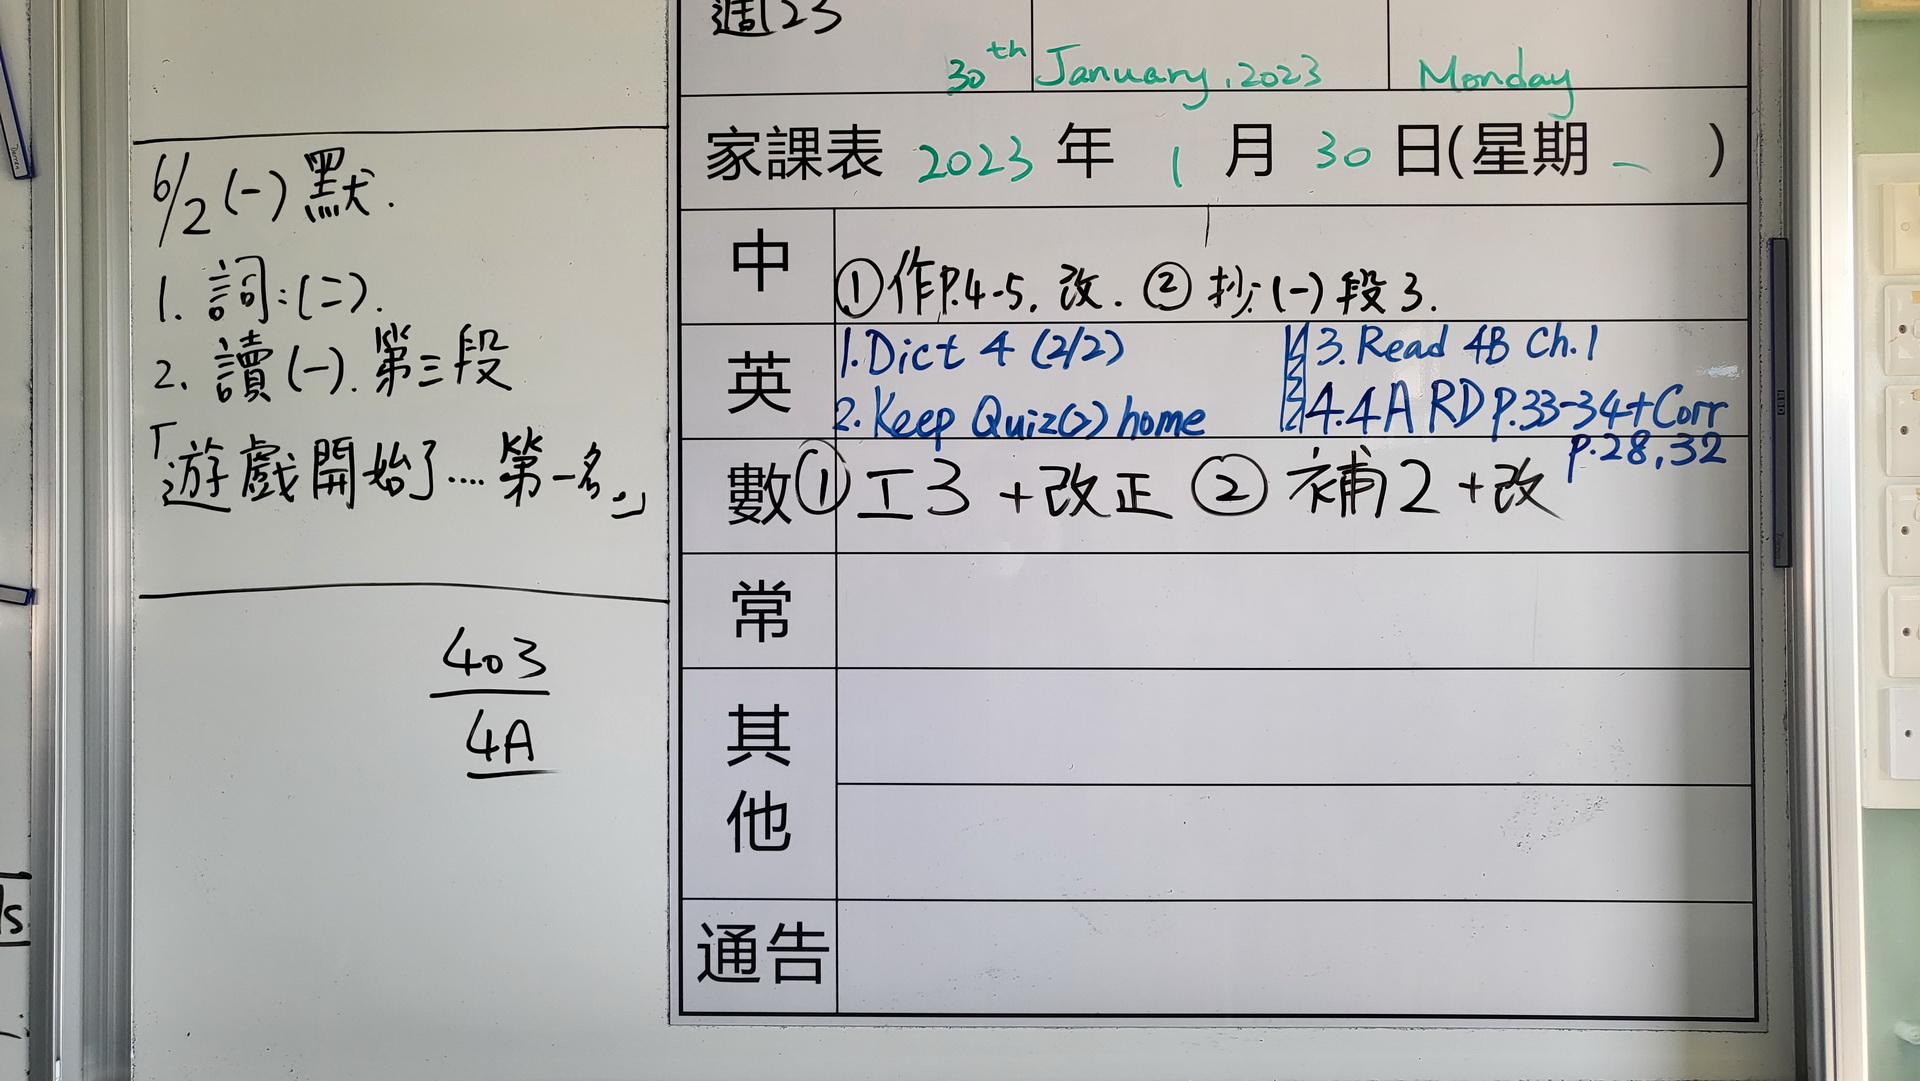 6/2 (一) 默.
1. 詞:(二).
2. 讀(一). 第三段
「遊戲開始了.... 第一名。」
403
4A
週23
30th January, 2023 Monday
家課表 2023 年 1 月 30 日(星期 一 )
中
①作P.4-5. 改. ② 抄:(一) 段 3.
英
1. Dict 4 (2/2)
2. Keep Quiz(2) home
3. Read 4B Ch.1
4. 4A RD p.33-34+Corr
p.28, 32
數
① 工3 + 改正 ② 補2 + 改
常
其他
通告